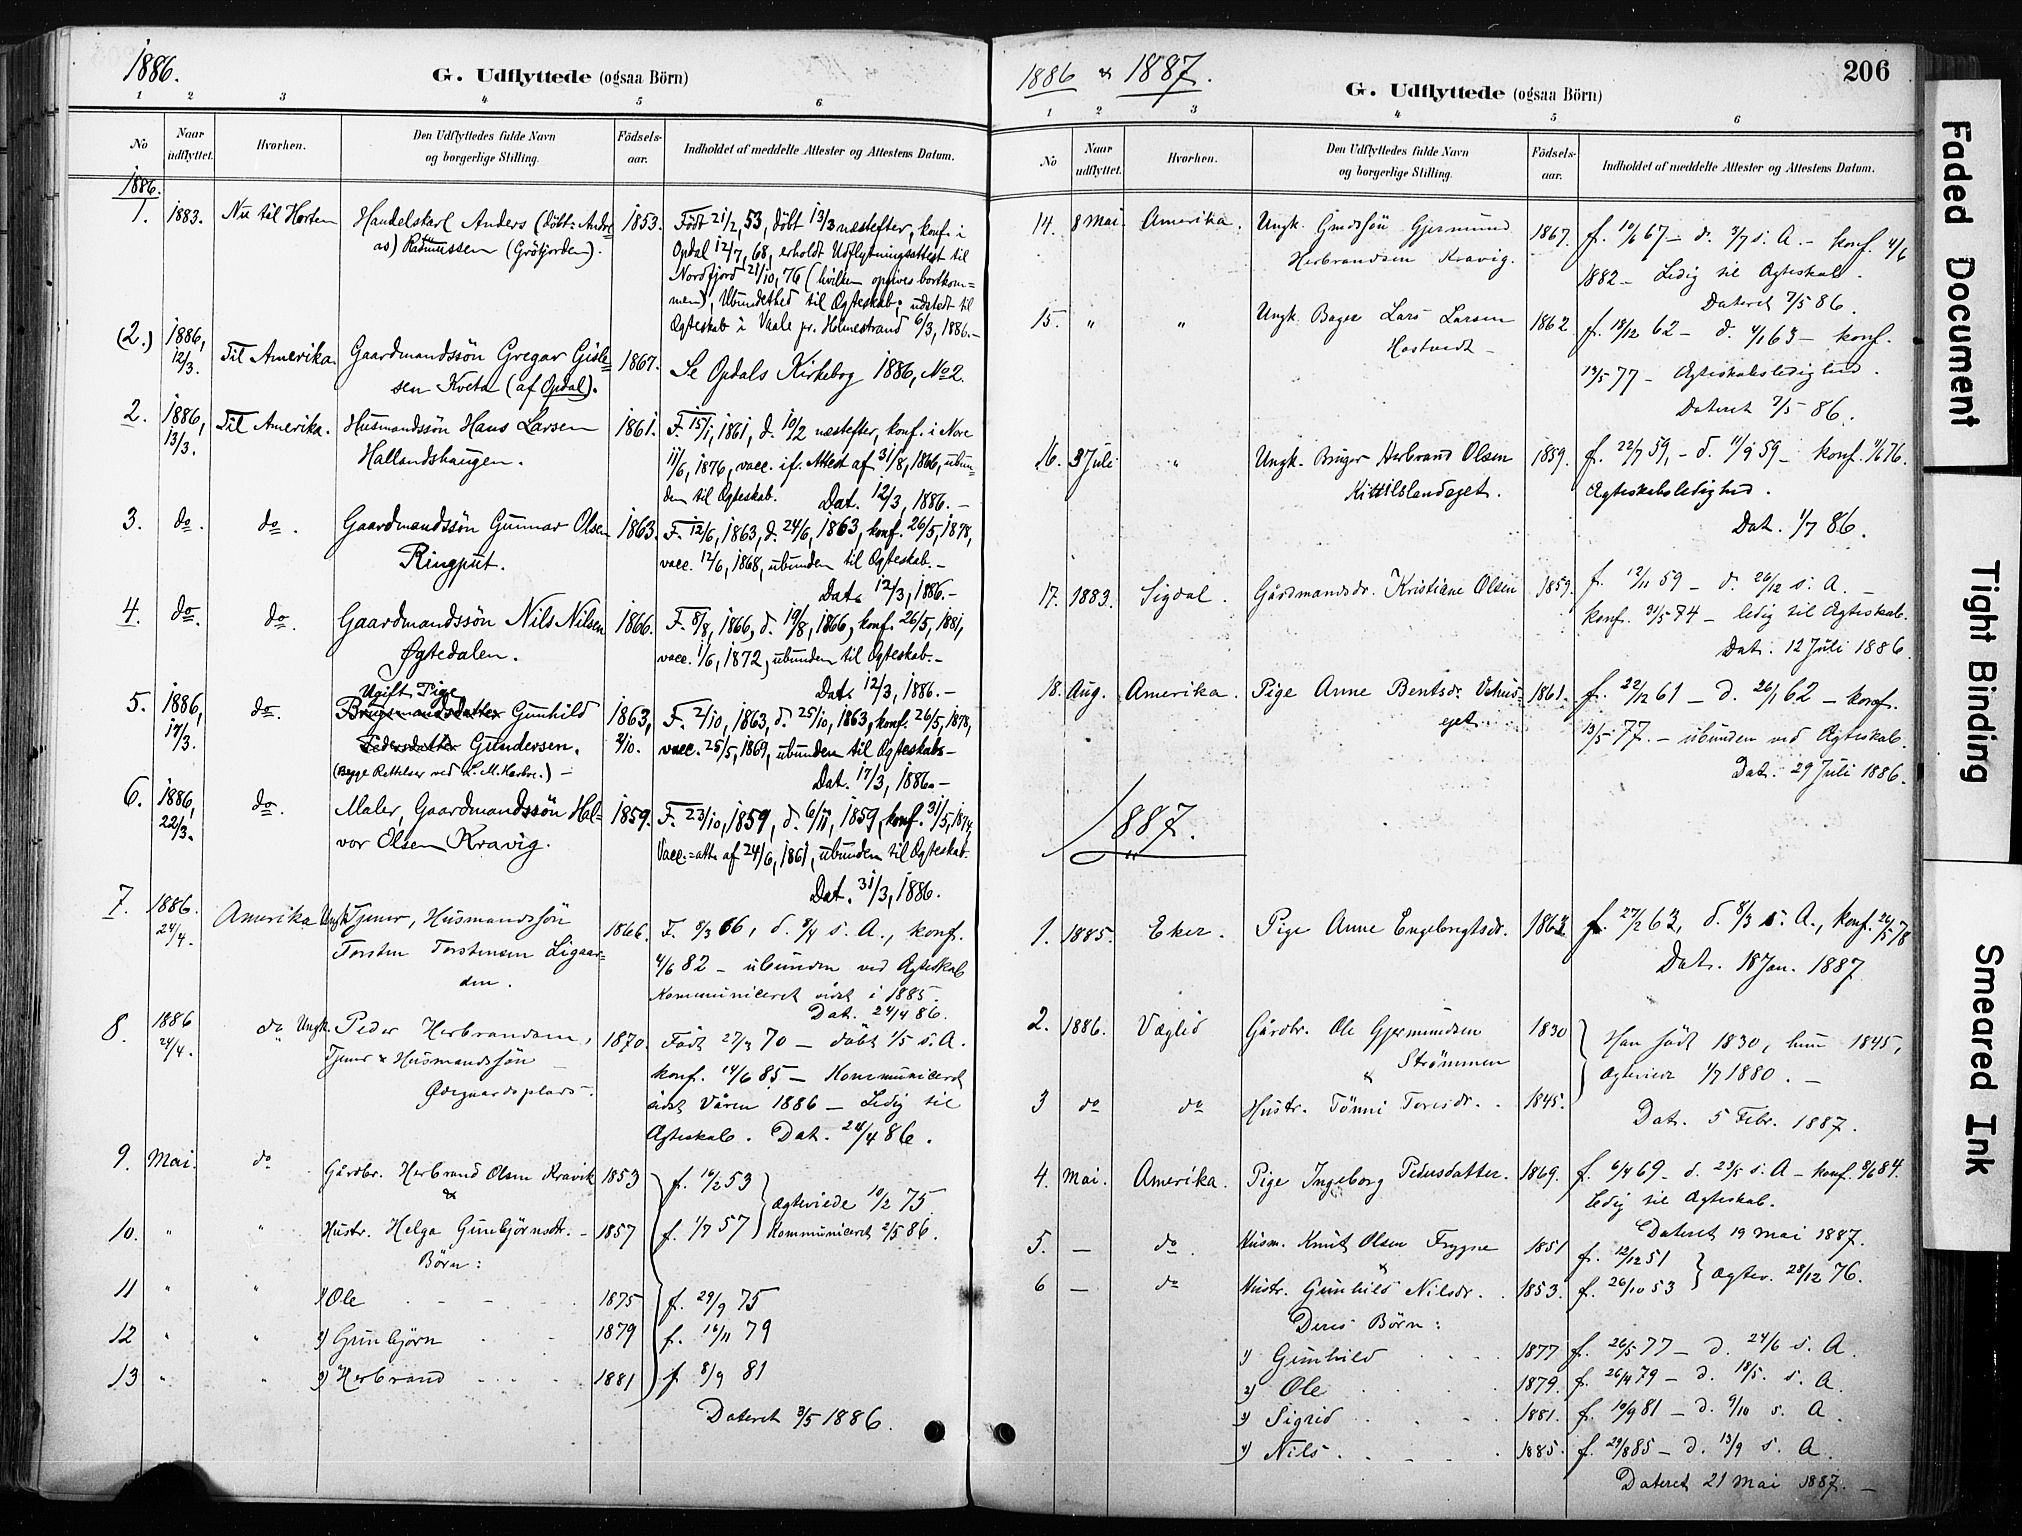 1886.
G. Udflyttede (ogsaa Börn)
1 2 3 4 5 6
No
Naar udflyttet.
Hvorhen.
Den Udflyttedes fulde Navn og borgerlige Stilling.
Födsels-aar.
Indholdet af meddelte Attester og Attestens Datum.
1886.
1. 1883. Nu til Horten Handelskarl Anders (döbt: Andre= 1853. Födt 21/2, 53, döbt 13/3 næstefter, konf. i
as) Rasmussen (Gröfjorden). Opdal 12/7, 68, erholdt Udflytningsattest til
Nordfjord 21/10, 76 (hvilken opgives bortkom=
men), Ubundethed til Ægteskab; udstedt til
Ægteskab i Vaale pr. Holmestrand 6/3, 1886.-
(2.) 1886, 12/3. Til Amerika. Gaardmandssön Gregar Gisle= 1867. Se Opdals Kirkebog 1886, No 2.
sen Kveta (af Opdal).
2. 1886, 13/3. Til Amerika. Husmandssön Hans Larsen 1861. F. 15/1, 1861, d. 10/2 næstefter, konf. i Nore
Hallandshaugen. 11/6, 1876, vacc. if. Attest af 31/8, 1866, ubun=
den til Ægteskab. Dat. 12/3, 1886.-
3. do. do. Gaardmandssön Gunnar Olsen 1863. F. 12/6, 1863, d. 24/6, 1863, konf. 26/5, 1878,
Ringput. vacc. 12/6, 1868, ubunden til Ægteskab.-
Dat. 12/3, 1886.-
4. do. do. Gaardmandssön Nils Nilsen 1866. F. 8/8, 1866, d. 19/8, 1866, konf. 26/5, 1881,
Øgtedalen. vacc. 1/6, 1872, ubunden til Ægteskab.-
Dat. 12/3, 1886.-
Ugift Pige
5. 1886, 17/3. do. Brugsmandsdatter Gunhild 1863, 2/10. F. 2/10, 1863, d. 25/10, 1863, konf. 26/5, 1878,
Pedersdatter Gundersen. vacc. 25/5, 1869, ubunden til Ægteskab.-
(Begge Rettelser ved L. M. Harboe.) - Dat. 17/3, 1886.-
6. 1886, 22/3. do. Maler, Gaardmandssön Hal= 1859. F. 23/10, 1859, d. 6/11, 1859, konf. 31/5, 1874,
vor Olsen Kravig. Vacc.=att. af 24/6, 1861, ubunden til Ægteskab.
Dat. 31/3, 1886.
7. 1886. 24/4. Amerika Ungk. Tjener, Husmandssön 1866. F. 8/3 66, d. 8/4 s. A., konf.
Torsten Torstensen Ligaar= 4/6 82 - ubunden ved Ægteskab
den. Kommuniceret sidst i 1885.
Dat. 24/4 86.
8. 1886 24/4. do Ungk. Peder Herbrandsen, 1870. Födt 27/3 70 - döbt 1/5 s. A.
Tjener & Husmandssön konf. 14/6 85 - Kommuniceret
Ødegaardsplads. sidst Våren 1886 - Ledig til
Ægteskab. Dat. 24/4 86.
9. Mai. do Gårdbr. Herbrand Olsen Kravik 1853 f. 16/2 53
& Ægteviede 10/2 75
10. " " Hustr. Helga Gunbjörnsdtr. - 1857 f. 1/7 57 Kommuniceret 2/5 86.
Börn:
11 " " 1) Ole 1875 f. 29/9 75
12 " " 2) Gunbjörn 1879 f. 16/11 79
13 " " 3) Herbrand 1881 f 8/9 81
Dateret 3/5 1886.
1886 & 1887.
206
G. Udflyttede (ogsaa Börn)
1 2 3 4 5 6
No
Naar udflyttet.
Hvorhen.
Den Udflyttedes fulde Navn og borgerlige Stilling.
Födsels-aar.
Indholdet af meddelte Attester og Attestens Datum.
14. 8 Mai. Amerika. Ungk. Grdssön Gjermund 1867. f. 10/6 67 - d. 3/7 s. A. - konf. 4/6
Herbrandsen Kravig. 1882 - Ledig til Ægteskab.
Dateret 7/5 86.
15. " " Ungk. Bager Lars Larsen 1862 f. 18/12 62 - d. 4/1 63 - konf.
Hostvedt - 13/5 77 - Ægteskabsledighed.
Dateret 7/5 86.
16. 3 Juli " Ungk. Bruger Herbrand Olsen 1859. f. 22/7 59, - d. 11/9 59 - konf. 11/6 76.
Kittilslandeget. Ægteskabsledighed.
Dat. 1/7 86.
17. 1883. Sigdal. Gårdmandsdr. Kristiane Olsen 1859. f. 12/11 59 - d. 26/12 s. A. -
konf. 31/5 74 - ledig til Ægteskab.
Dat. 12 Juli 1886.
18. Aug. Amerika. Pige Anne Bentsdr. 1861. f. 22/12 61 - d. 26/1 62 - konf.
eget. 13/5 77. - ubunden ved Ægteskab.
Dat. 29 Juli 1886.
1887.
1. 1885. Eker. Pige Anne Engebrigtsdr. 1863 f. 27/2 63, d. 8/3 s. A., konf. 26/5 78
Dat. 18 Jan. 1887.
2. 1886. Væglid Gårdbr. Ole Gjermundsen 1830 Han födt 1830, hun 1845,
& Strömmen Ægteviede 1/7 1880. -
3 do do Hustr. Tönni Toresdr. 1845. Dat. 5 Febr. 1887.
4. Mai. Amerika. Pige Ingeborg Pedersdatter. 1869. f. 6/4 69 - d. 23/5 s. A - konf. 8/6 84.
Ledig til Ægteskab.
Dateret 19 Mai 1887.
5. - do. Husm. Knut Olsen Frygne 1851 f. 12/12 51
& Ægtev. 28/12 76.
6 - do Hustr. Gunhild Nilsdr. 1853. f. 26/10 53
Deres Börn:
1) Gunhild 1877 f. 26/5 77 - d. 24/6 s. A.
2) Ole 1879. f. 26/4 79 - d. 18/5. s. A.
3) Sigrid 1881. f. 10/9 81 - d. 9/10 s. A.
4) Nils 1885. f. 29/8 85 - d. 13/9 s. A.
Dateret 21 Mai 1887. -
Faded Document
Tight Binding
Smeared Ink